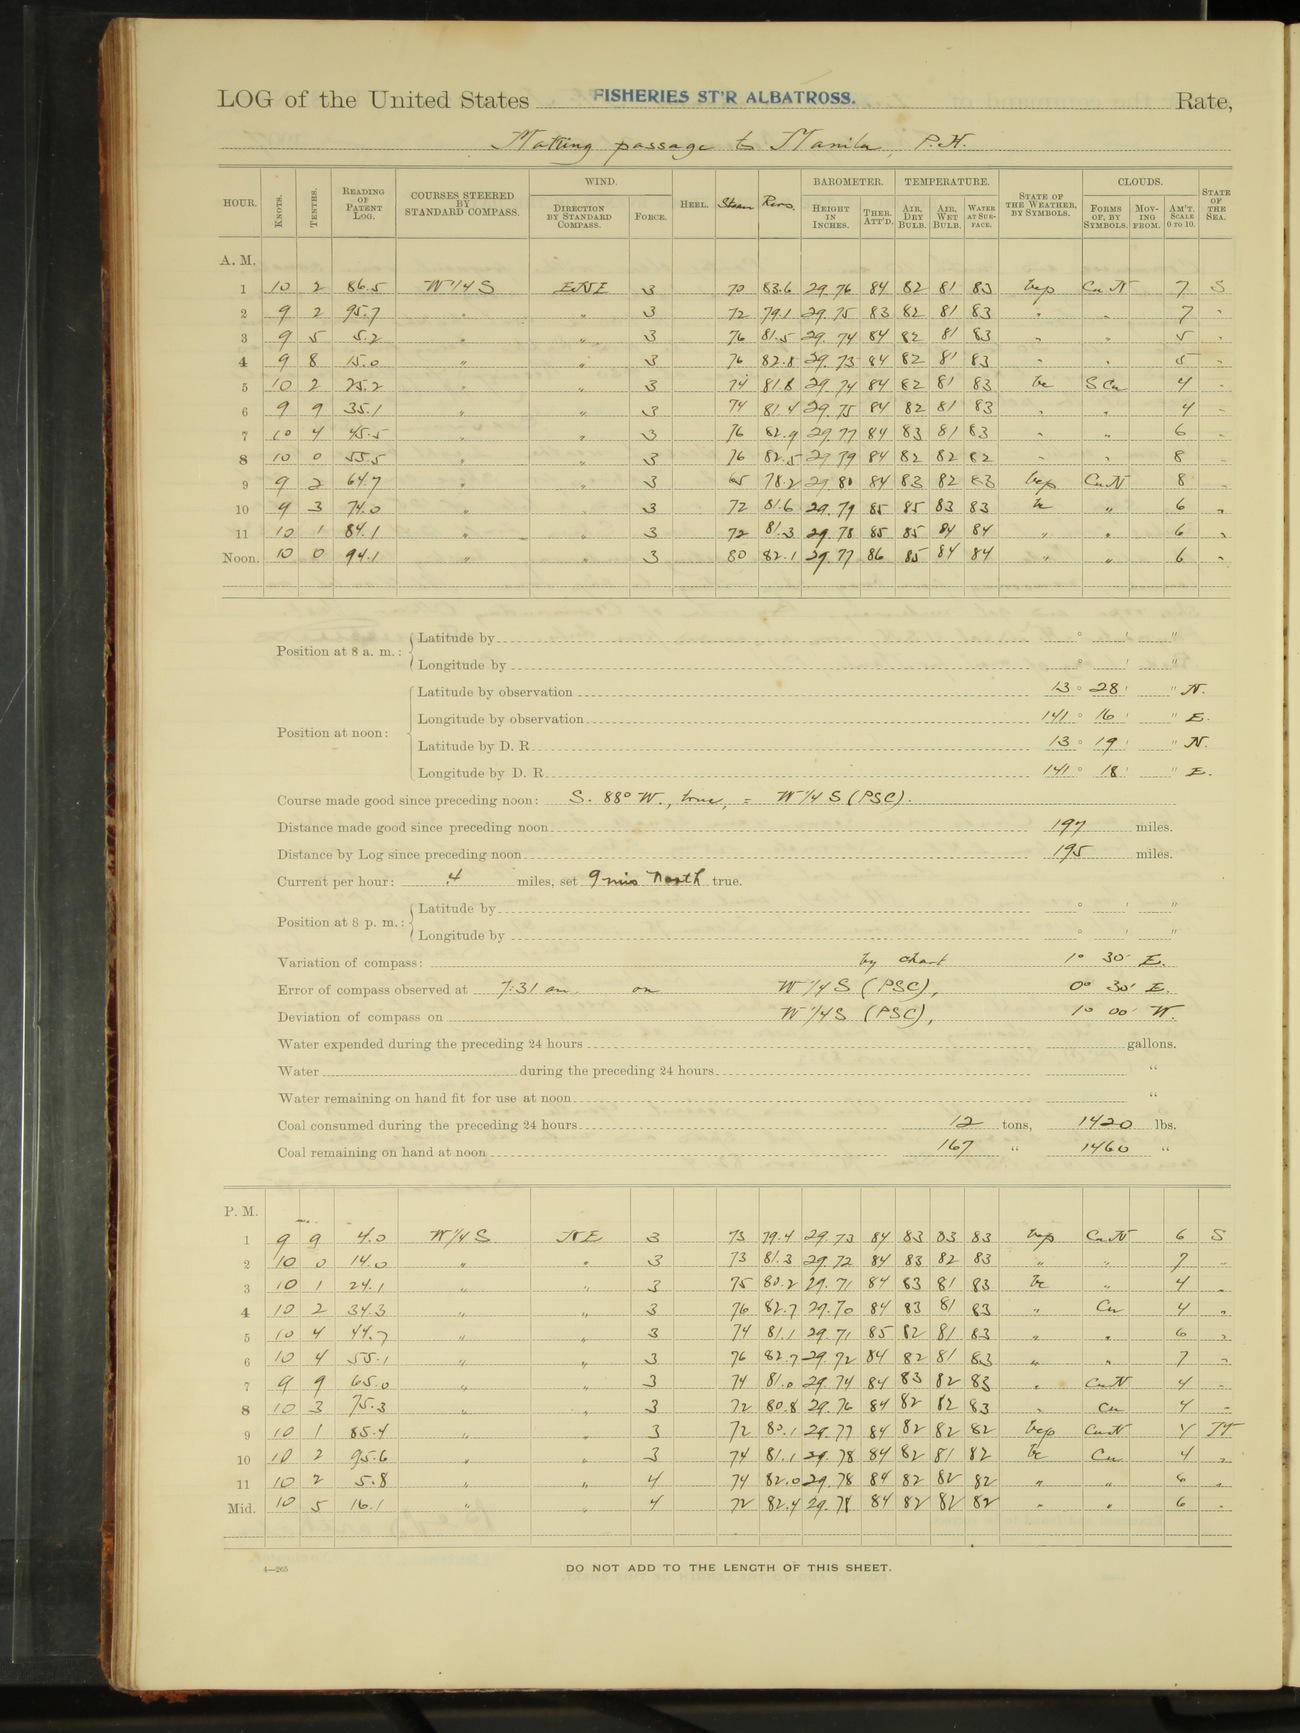 LOG of the United States FISHERIES ST'R ALBATROSS. Rate,
Making passage to Manila, P.H.
HOUR. KNOTS. TENTHS. READING OF PATENT LOG. COURSES STEERED BY STANDARD COMPASS. WIND. DIRECTION BY STANDARD COMPASS. FORCE. HEEL. Steam Revs. BAROMETER. HEIGHT IN INCHES. THER. ATT'D. TEMPERATURE. AIR, DRY BULB. AIR, WET BULB. WATER AT SURFACE. STATE OF THE WEATHER, BY SYMBOLS. CLOUDS. FORMS OF, BY SYMBOLS. MOVING FROM. AM'T. SCALE 0 TO 10. STATE OF THE SEA.
A. M.
1 10 2 86.5 W 1/4 S ENE 3 70 83.6 29.76 84 82 81 83 bcp Cu N 7 S
2 9 2 95.7 " " 3 72 79.1 29.75 83 82 81 83 " " 7 "
3 9 5 5.2 " " 3 76 81.5 29.74 84 82 81 83 " " 5 "
4 9 8 15.0 " " 3 76 82.8 29.73 84 82 81 83 " " 5 "
5 10 2 25.2 " " 3 74 81.8 29.74 84 82 81 83 bc S Cu 4 "
6 9 9 35.1 " " 3 74 81.4 29.75 84 82 81 83 " " 4 "
7 10 4 45.5 " " 3 76 82.9 29.77 84 83 81 83 " " 6 "
8 10 0 55.5 " " 3 76 82.5 29.79 84 82 82 82 " " 8 "
9 9 2 64.7 " " 3 65 78.2 29.80 84 83 82 83 bcp Cu N 8 "
10 9 3 74.0 " " 3 72 81.6 29.79 85 85 83 83 bc " 6 "
11 10 1 84.1 " " 3 72 81.3 29.78 85 85 84 84 " " 6 "
Noon. 10 0 94.1 " " 3 80 82.1 29.77 86 85 84 84 " " 6 "
Position at 8 a. m.: Latitude by ° ' "
Longitude by ° ' "
Position at noon: Latitude by observation 13 ° 28 ' " N.
Longitude by observation 141 ° 16 ' " E.
Latitude by D. R. 13 ° 19 ' " N.
Longitude by D. R. 141 ° 18 ' " E.
Course made good since preceding noon: S. 88° W., true, = W 1/4 S (PSC).
Distance made good since preceding noon 197 miles.
Distance by Log since preceding noon 195 miles.
Current per hour: .4 miles, set 9 mis North true.
Position at 8 p. m.: Latitude by ° ' "
Longitude by ° ' "
Variation of compass: by chart 1° 30' E.
Error of compass observed at 7:31 am. on W 1/4 S (PSC), 0° 30' E.
Deviation of compass on W 1/4 S (PSC), 1° 00' W.
Water expended during the preceding 24 hours gallons.
Water during the preceding 24 hours "
Water remaining on hand fit for use at noon "
Coal consumed during the preceding 24 hours 12 tons, 1420 lbs.
Coal remaining on hand at noon 167 " 1460 "
P. M.
1 9 9 4.0 W 1/4 S NE 3 73 79.4 29.73 84 83 83 83 bcp Cu N 6 S
2 10 0 14.0 " " 3 73 81.3 29.72 84 83 82 83 " " 7 "
3 10 1 24.1 " " 3 75 80.2 29.71 84 83 81 83 bc " 4 "
4 10 2 34.3 " " 3 76 82.7 29.70 84 83 81 83 " Cu 4 "
5 10 4 44.7 " " 3 74 81.1 29.71 85 82 81 83 " " 6 "
6 10 4 55.1 " " 3 76 82.7 29.72 84 82 81 83 " " 7 "
7 9 9 65.0 " " 3 74 81.0 29.74 84 83 82 83 " Cu N 4 "
8 10 3 75.3 " " 3 72 80.8 29.76 84 82 82 83 " Cu 4 "
9 10 1 85.4 " " 3 72 80.1 29.77 84 82 82 82 bcp Cu N 4
10 10 2 95.6 " " 3 74 81.1 29.78 84 82 81 82 bc Cu 4 "
11 10 2 5.8 " " 4 74 82.0 29.78 84 82 82 82 " " 6 "
Mid. 10 5 16.1 " " 4 72 82.4 29.78 84 82 82 82 " " 6 "
4—265
DO NOT ADD TO THE LENGTH OF THIS SHEET.